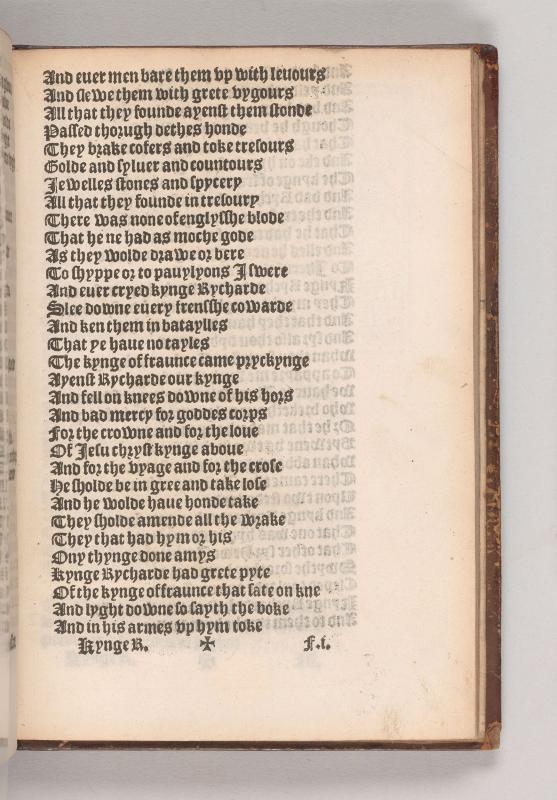 And euer men bare them vp with leuours
And slewe them with grete vygours
All that they founde ayenst them stonde
Passed thorugh dethes honde
They brake cofers and toke tresours
Golde and syluer and countours
Jewelles stones and spycery
All that they founde in tresoury
There was none of englysshe blode
That he ne had as moche gode
As they wolde drawe or bere
To shyppe or to pauylyons J swere
And euer cryed kynge Rycharde
Slee downe euery frensshe cowarde
And ken them in bataylles
That ye haue no tayles
The kynge of fraunce came pryckynge
Ayenst Rycharde our kynge
And fell on knees downe of his hors
And bad mercy for goddes corps
For the crowne and for the loue
Of Jesu chryst kynge aboue
And for the vyage and for the crose
He sholde be in gree and take lose
And he wolde haue honde take
They sholde amende all the wrake
They that had hym or his
Ony thynge done amys
Kynge Rycharde had grete pyte
Of the kynge of fraunce that sate on kne
And lyght downe so sayth the boke
And in his armes vp hym toke
Kynge R. ✠ F.i.